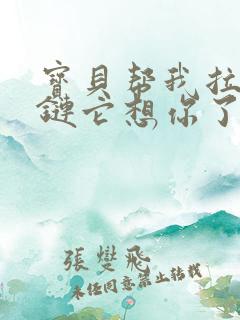 寶貝帮我拉
鏈它想你了
張燮飛
未任同意禁止转载